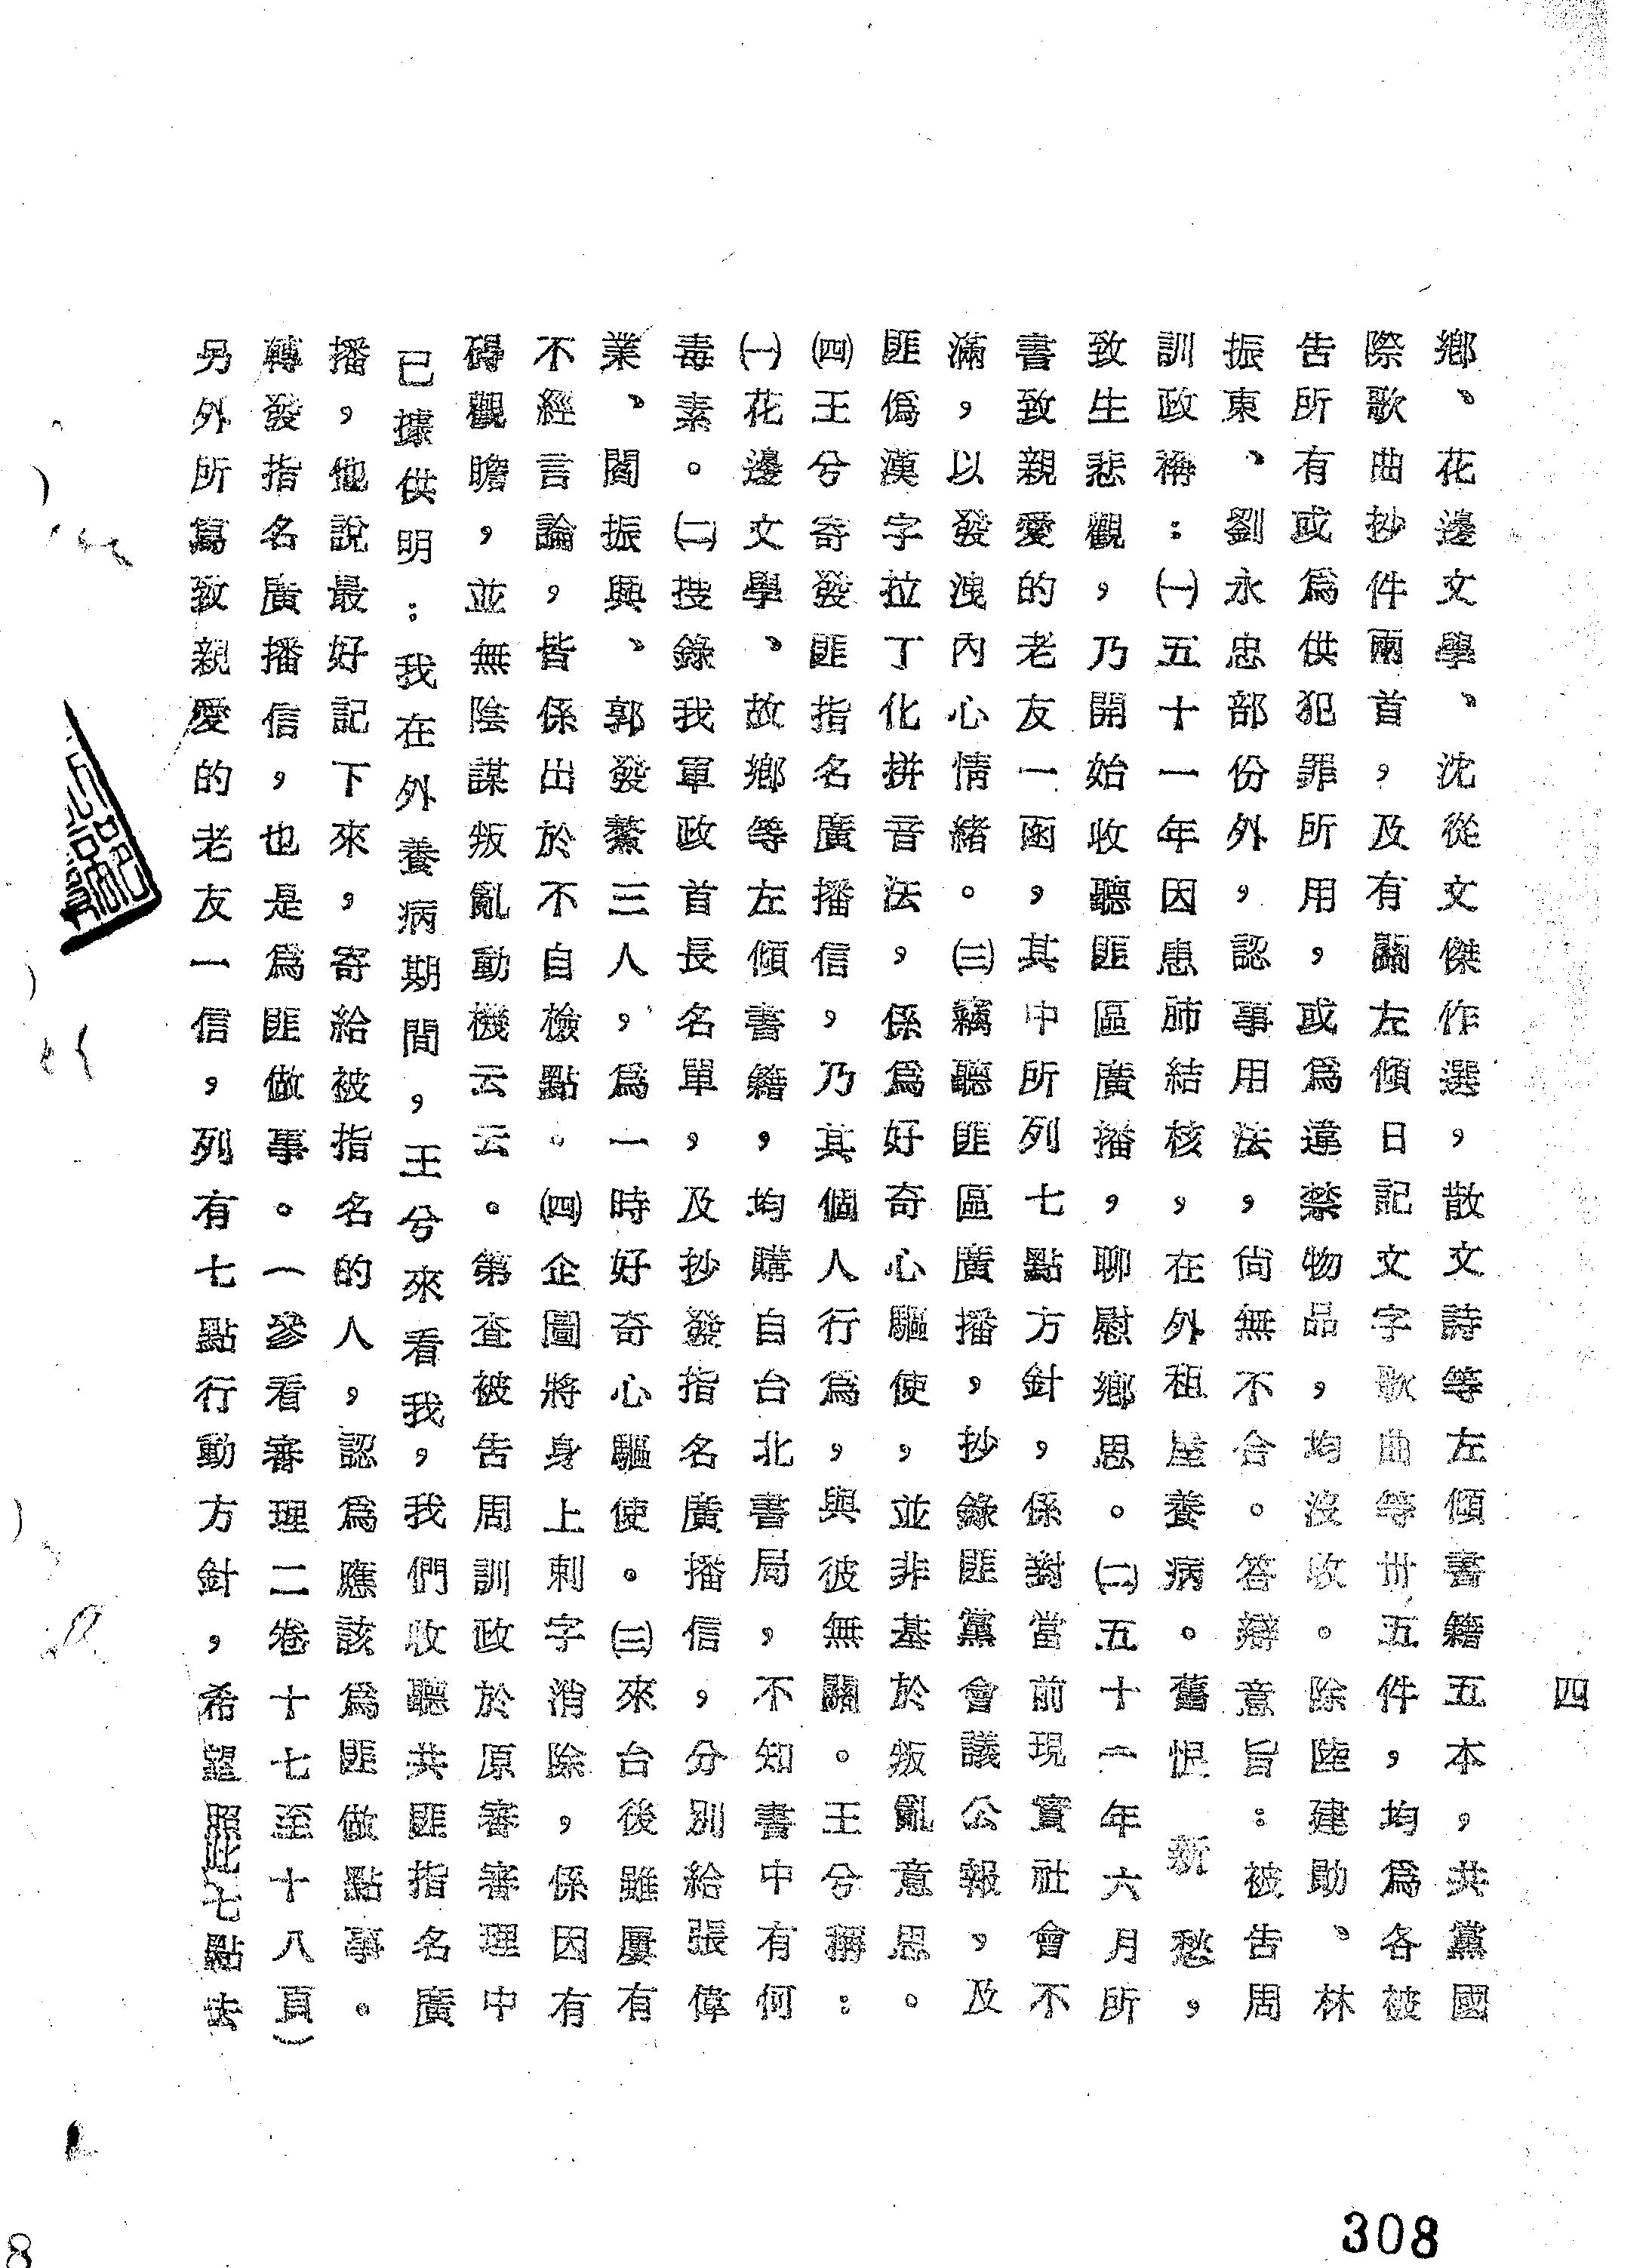 四
鄉、花邊文學、沈從文傑作選，散文詩等左傾書籍五本，共黨國
際歌曲抄件兩首，及有關左傾日記文字歌曲等卅五件，均為各被
告所有或為供犯罪所用，或為違禁物品，均沒收。除陸建勛、林
振東、劉永忠部份外，認事用法，尚無不合。答辯意旨：被告周
訓政稱：㈠五十一年因患肺結核，在外租屋養病。舊恨新愁，
致生悲觀，乃開始收聽匪區廣播，聊慰鄉思。㈡五十一年六月所
書致親愛的老友一函，其中所列七點方針，係對當前現實社會不
滿，以發洩內心情緒。㈢竊聽匪區廣播，抄錄匪黨會議公報，及
匪偽漢字拉丁化拼音法，係為好奇心驅使，並非基於叛亂意思。
㈣王兮寄發匪指名廣播信，乃其個人行為，與彼無關。王兮稱：
㈠花邊文學、故鄉等左傾書籍，均購自台北書局，不知書中有何
毒素。㈡搜錄我軍政首長名單，及抄發指名廣播信，分別給張偉
業、閻振興、郭發鰲三人，為一時好奇心驅使。㈢來台後雖屢有
不經言論，皆係出於不自檢點。㈣企圖將身上刺字消除，係因有
礙觀瞻，並無陰謀叛亂動機云云。第查被告周訓政於原審審理中
已據供明：我在外養病期間，王兮來看我，我們收聽共匪指名廣
播，他說最好記下來，寄給被指名的人，認為應該為匪做點事。
轉發指名廣播信，也是為匪做事。（參看審理二卷十七至十八頁）
另外所寫致親愛的老友一信，列有七點行動方針，希望照此七點去
308
8